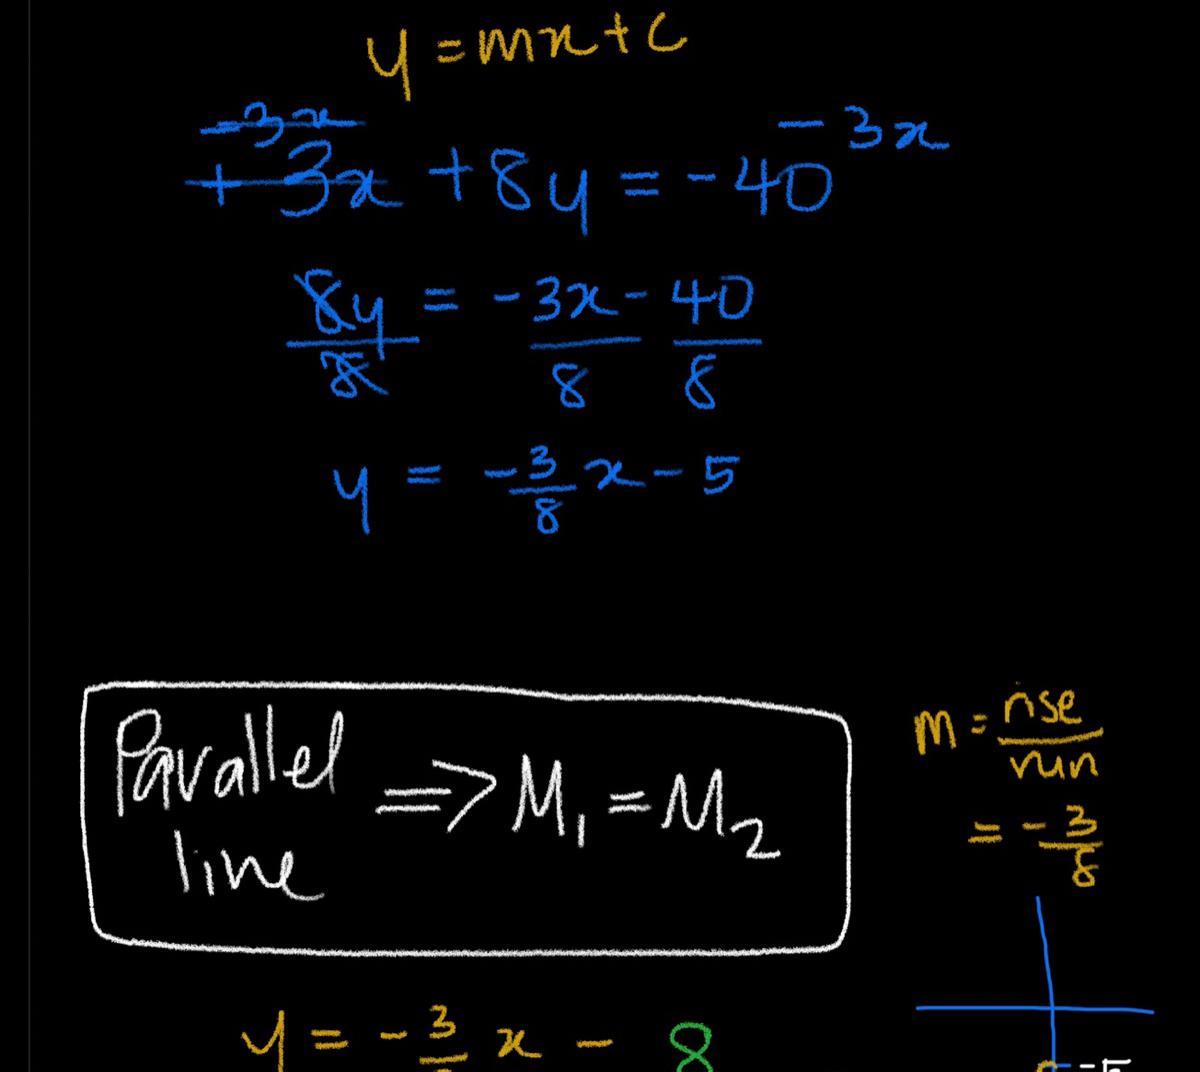 y = mx + c
-3x -3x
+3x + 8y = -40
8y/8 = -3x/8 - 40/8
y = -3/8 x - 5
Parallel line => M₁ = M₂
m = rise/run
= -3/8
y = -3/ x - 8